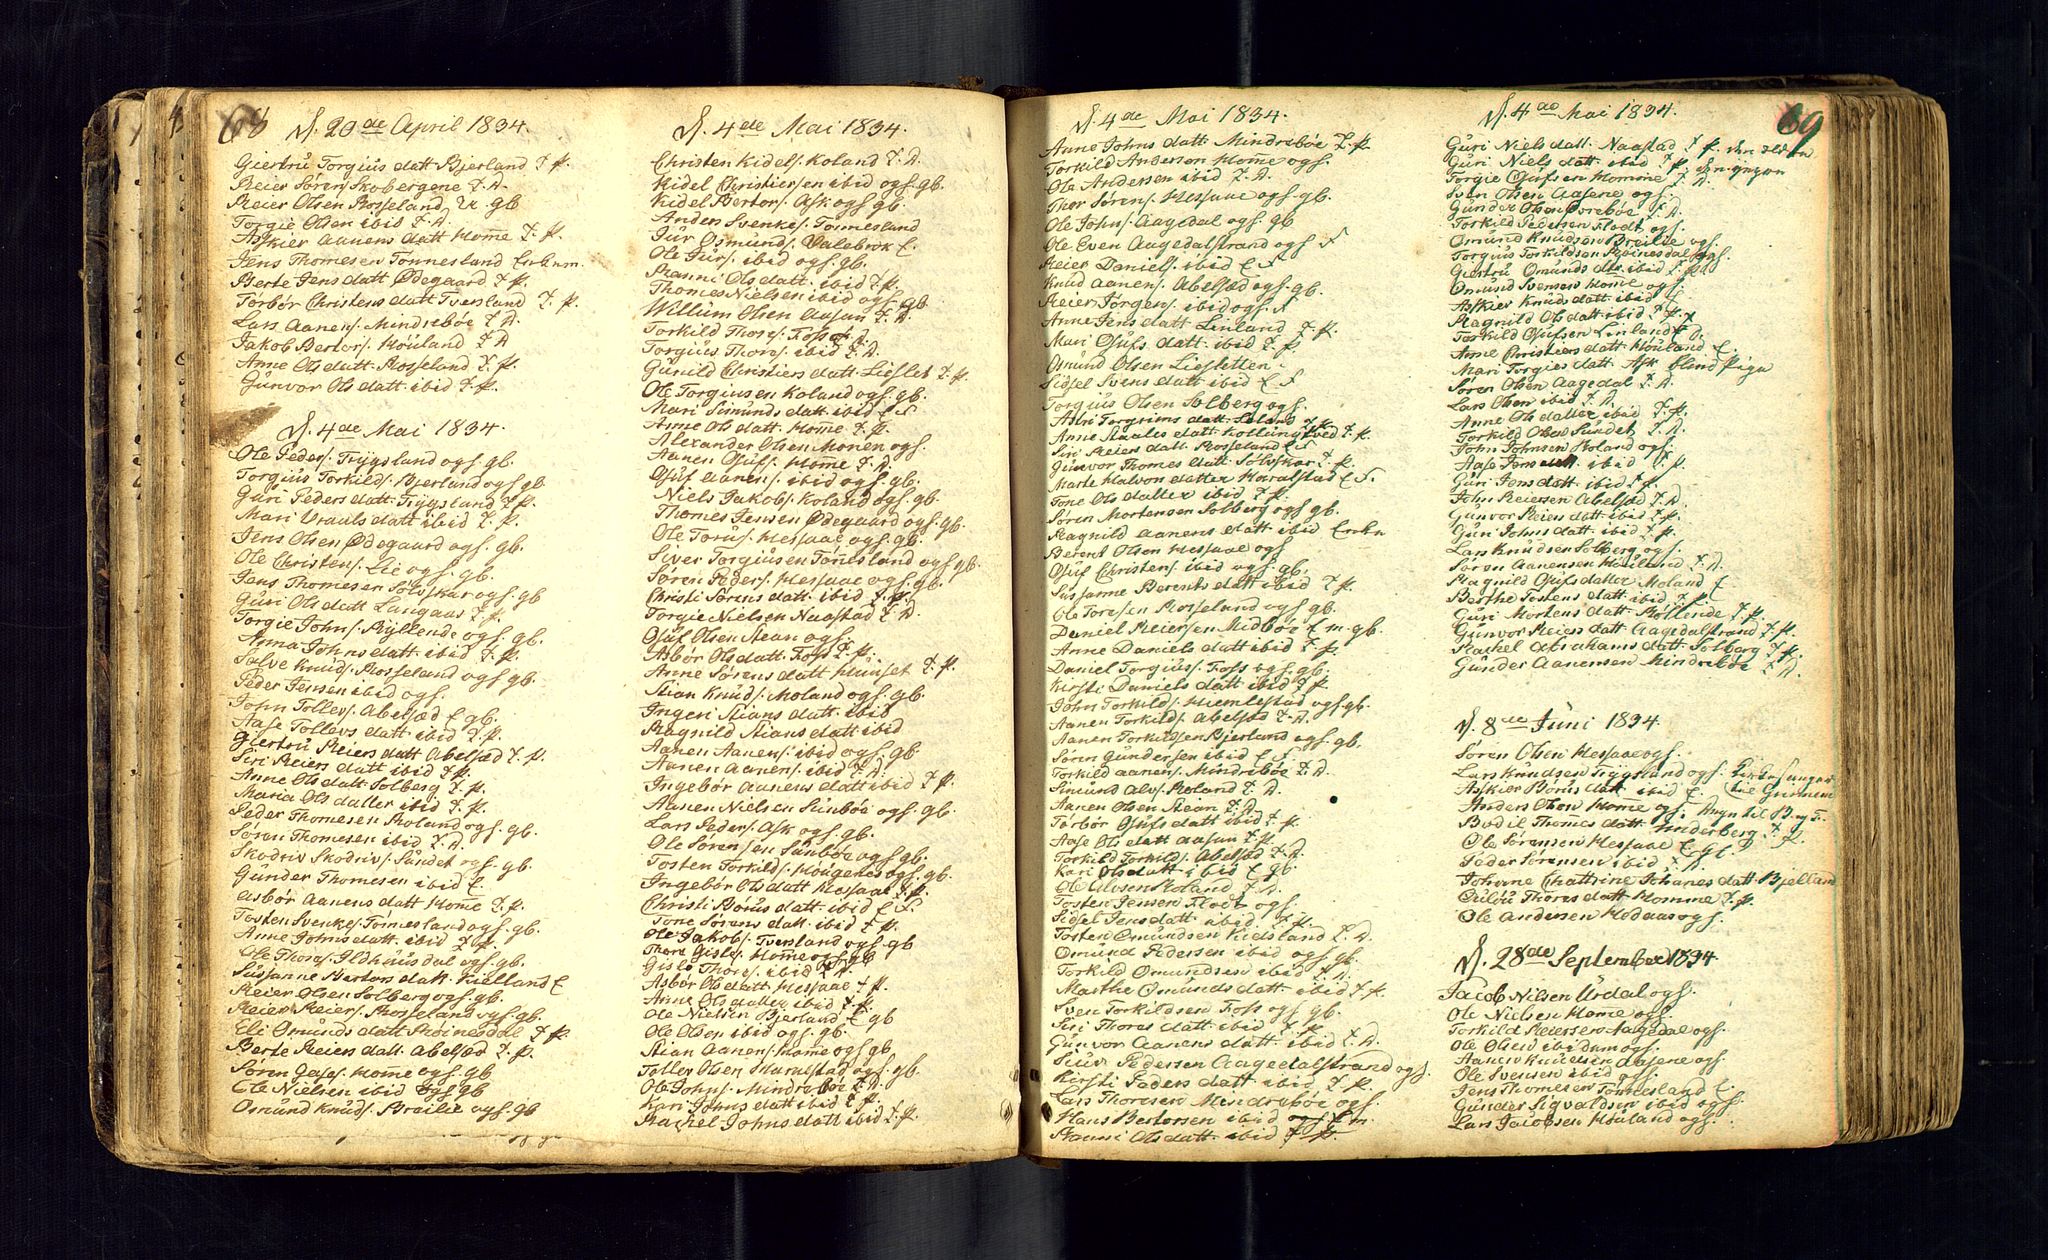 68
D. 20de April 1834.
Giertru Torgius datt Bjerland T. P.
Reier Søren Skobergene T. D.
Reier Olsen Rosseland, U. gb
Torgie Olsen ibid T. D.
Askier Aanens datt Home T. P.
Jens Thomesen Tonnesland E. m.
Berte Jens datt Ødegaard T. P.
Torbør Christens datt Tversland T. P.
Lars Aanens. Mindrebøe T. D.
Jakob Bertors. Høuland T. D
Anne Ols datt. Rosseland T. P.
Gunvor Ols datt ibid T. P.
D. 4de Mai 1834.
Ole Peders. Trygsland og f. gb.
Torgius Torkilds. Bjerland og f. gb
Guri Peders datt Trygsland T. P.
Mari Vraals datt ibid T. P.
Jens Olsen Ødegaard og f. gb.
Ole Christens. Lie og f. gb.
Jens Thomesen Solvskar og f. gb
Guri Ols datt Langaas T. P.
Torgie Johns. Ryllende og f. gb.
Anna Johns datt ibid T. P.
Salve Knuds. Rosseland og f. gb.
Peder Jensen ibid og f.
John Tollevs. Abelsæd E. gb.
Aase Tollevs datt ibid T. P.
Giertru Reiers datt Abelsæd T. P.
Siri Reiers datt ibid T. P.
Anne Ols datt Solberg T. P.
Maria Ols datter ibid T. P.
Peder Thomesen Roland og f. gb.
Søren Thomesen ibid T. D.
Skodriv Skodrivs. Sundet og f. gb.
Gunder Thomesen ibid E.
Asbør Aanens datt Home T. P.
Tosten Svenkes. Tonnesland og f. gb.
Anne Johns datt. ibid T. P.
Ole Thores. Ildhuusdal og f. gb.
Sussanne Bertors datt. Kielland E
Reier Olsen Solberg og f. gb.
Reier Reiers. Rosseland og f. gb.
Eli Omunds datt Roinesdal T. P.
Berte Reiers datt. Abelsæd T. P.
Søren Jases. Home og f. gb
Ole Nielsen ibid og f. gb
Osmund Knuds. Brailie og f. gb
D. 4de Mai 1834.
Christen Kidels. Koland T. D.
Kidel Christiersen ibid og f. gb.
Kidel Bertors. Ask og f. gb.
Anders Svenkes. Tonnesland
Jur Osmunds. Valebrok E.
Ole Jurs. ibid og f. gb.
Ranni Ols datt. ibid T. P.
Thomes Nielsen ibid og f. gb
Willum Olsen Aasan T. D.
Torkild Thores. Foss T. D
Torgius Thors. ibid T. D.
Gunild Christiers datt. Lieslet T. P.
Ole Torgiusen Koland og f. gb.
Mari Simunds datt ibid E. F
Anne Ols datt Home T. P.
Alexander Olsen Monen og f.
Aanen Osufs. Home T. D.
Osuf Aanens. ibid og f. gb.
Niels Jakobs. Koland og f. gb
Thomes Jensen Ødegaard og f. gb.
Ole Torus. Hessaae og f. gb.
Siver Torgiusen Tonnesland og f. gb.
Søren Peders. Hessaae og f. gb.
Christi Sørens datt ibid T. P.
Torgie Nielsen Naastad T. D
Osuf Olsen Stean og f.
Asbør Ols datt. Foss T. P.
Anne Sørens datt Hunset T. P.
Stian Knuds. Moland og f. gb.
Ingeri Stians datt. ibid
Ragnild Stians datt ibid
Aanen Aanens. ibid og f. gb
Aanen Aanens. ibid T. D.
Ingebør Aanens datt ibid T. P
Aanen Nielsen Sunbøe og f. gb
Lars Peders. Ask og f. gb.
Ole Sørensen Sunbøe og f. gb.
Tosten Torkilds. Høugenes og f. gb.
Ingebør Ols datt Hessaae T. P.
Christi Børus datt ibid E. F.
Tone Sørens datt. ibid T. P.
Ole Jakobs. Tversland og f. gb
Thore Gisles. Home og f. gb
Gisle Thores. ibid T. D.
Asbør Ols datt Hessaae T. P.
Anne Ols datter ibid T. P.
Ole Nielsen Bjerland E gb
Ole Olsen ibid og f. gb.
Stian Aanens. Home og f. gb
Tollev Olsen Haralstad og f. gb.
Ole Johns. Mindrebøe T. D.
Kari Johns datt ibid T. P.
Rachel Johns datt ibid T. P.
D. 4de Mai 1834.
Anne Johns datt Mindrebøe T. P.
Torkild Andersen Home og f.
Ole Andersen ibid T. D.
Thor Sørens. Hessaae og f. gb.
Ole Johns. Aagedal og f. gb
Ole Even Aagedalstrand og f. F
Reier Daniels. ibid E. F
Knud Aanens. Abelsæd og f. gb.
Reier Jørgens. ibid og f. F
Anne Jens datt Linland T. P.
Mari Osufs datt. ibid T. P.
Osmund Olsen Liesletten
Sidsel Svens datt ibid E F
Torgius Olsen Solberg og f.
Asbi Torgrims datt. Leland T. P.
Anne Staales datt Kollungtved T. P.
Siri Reiers datt. Rosseland E. F
Gunvor Thomes datt Solvskar T. P.
Marte Halvor datter Haralstad E. F.
Tone Ols datter ibid T. P.
Søren Mortensen Solberg og f. gb.
Ragnild Aanens datt. ibid Enke
Berent Olsen Hessaae og f
Osuf Christens. ibid og f. gb.
Sussanne Berents datt ibid T. P.
Ole Toresen Rosseland og f. gb.
Daniel Reiersen Midbøe E m. gb.
Anne Daniels datt ibid T. P.
Daniel Torgius. Foss og f. gb.
Kirsti Daniels datt ibid T. P.
John Torkilds. Hiemlestad og f. gb.
Aanen Torkilds. Abelsæd T. D.
Aanen Torkildsen Bjerland og f. gb.
Søren Gundersen ibid E. F
Torkild Aanens. Mindrebøe T. D.
Simund Alvs. Roland T. D.
Aanen Olsen Stean T. D.
Torbør Osufs datt ibid T. P
Aase Ols datt Aasan T. P.
Torkild Torkilds. Abelsæd T. D.
Kari Ols datt ibid E gb
Ole Ulvsen Roland T. D.
Tosten Jensen Flodt og f.
Sidsel Jens datt. ibid T. P.
Tosten Omundsen Kidsland T. D.
Omund Pedersen ibid og f.
Torkild Omundsen ibid T. D.
Marthe Omunds datt. ibid T. P.
Sven Torkildsen Foss og f. gb.
Siri Thores datt ibid T. P.
Gunvor Aanens datt ibid T. D.
Siur Pedersen Aagedalstrand og f.
Kirsti Peders datt ibid T. P.
Lars Thoresen Mindrebøe og f.
Hans Bertorsen ibid og f. E m.
Ranni Ols datt. ibid T. P.
69
D. 4de Mai 1834.
Guri Niels datt. Naastad T. P. den eldre
Guri Niels datt. ibid T. P. den yngere
Torgie Osufsen Homme T. D.
Sven Olsen Aasene og f.
Gunder Olsen Ørebøe T. D.
Torkild Pedersen Flodt og f.
Omund Knudsen Brailie og f.
Torgius Torkildsen Roinesdal og f.
Giertru Omunds dtr ibid T. P.
Omund Svensen Home og f.
Askier Knuds datt ibid E
Ragnild Ols datt ibid T. P.
Torkild Osufsen Linland T. D.
Anne Christiers datt. Høuland E.
Mari Torgies datt Ask blind Piga
Søren Olsen Aagedal T. D.
Lars Olsen ibid T. D.
Anne Ols datter ibid T. P.
Torkild Olsen Sundet T. D.
John Johnsen Roland og f.
Aase Jens datt ibid T. P
Guri Jens datt ibid T. P.
John Reiersen Abelsæd T. D.
Gunvor Reiers datt ibid T. P.
Guri Johns datt ibid T. P.
Lars Knudsen Solberg og f.
Søren Aanensen Høuland T. D.
Ragnild Osufs datter Moland E
Berthe Tostens datt ibid T. P.
Guri Mortens datt Røllende T. P.
Gunvor Reiers datt Aagedalstrand T. P.
Rachel Abrahams datt Solberg T. P.
Gunder Aanensen Mindrebøe T. D.
D. 8de Juni 1834.
Søren Olsen Hessaae og f.
Lars Knudsen Trygsland og f. Kirkesanger
Askier Børus datt ibid E. til Gunnem
Anders Olsen Home og f.
Bodil Thomes datt Underberg T. P.
Ole Sørensen Hessaae E. gb.
Peder Sørensen ibid T. D.
Johane Chattrine Johanes datt Bjelland
Gulou Thores datt Homme T. P
Ole Andersen Hodaas og f.
D. 28de September 1834
Jacob Nilsen Urdal og f.
Ole Nielsen Home og f.
Torkild Reiersen Aagedal og f.
Ole Olsen ibidem og f.
Aanen Knudsen Aasene og f.
Ole Svensen ibid og f.
Jens Thomesen Tonnesland E.
Gunder Sigvaldsen ibid og f.
Lars Jacobsen Høuland og f.